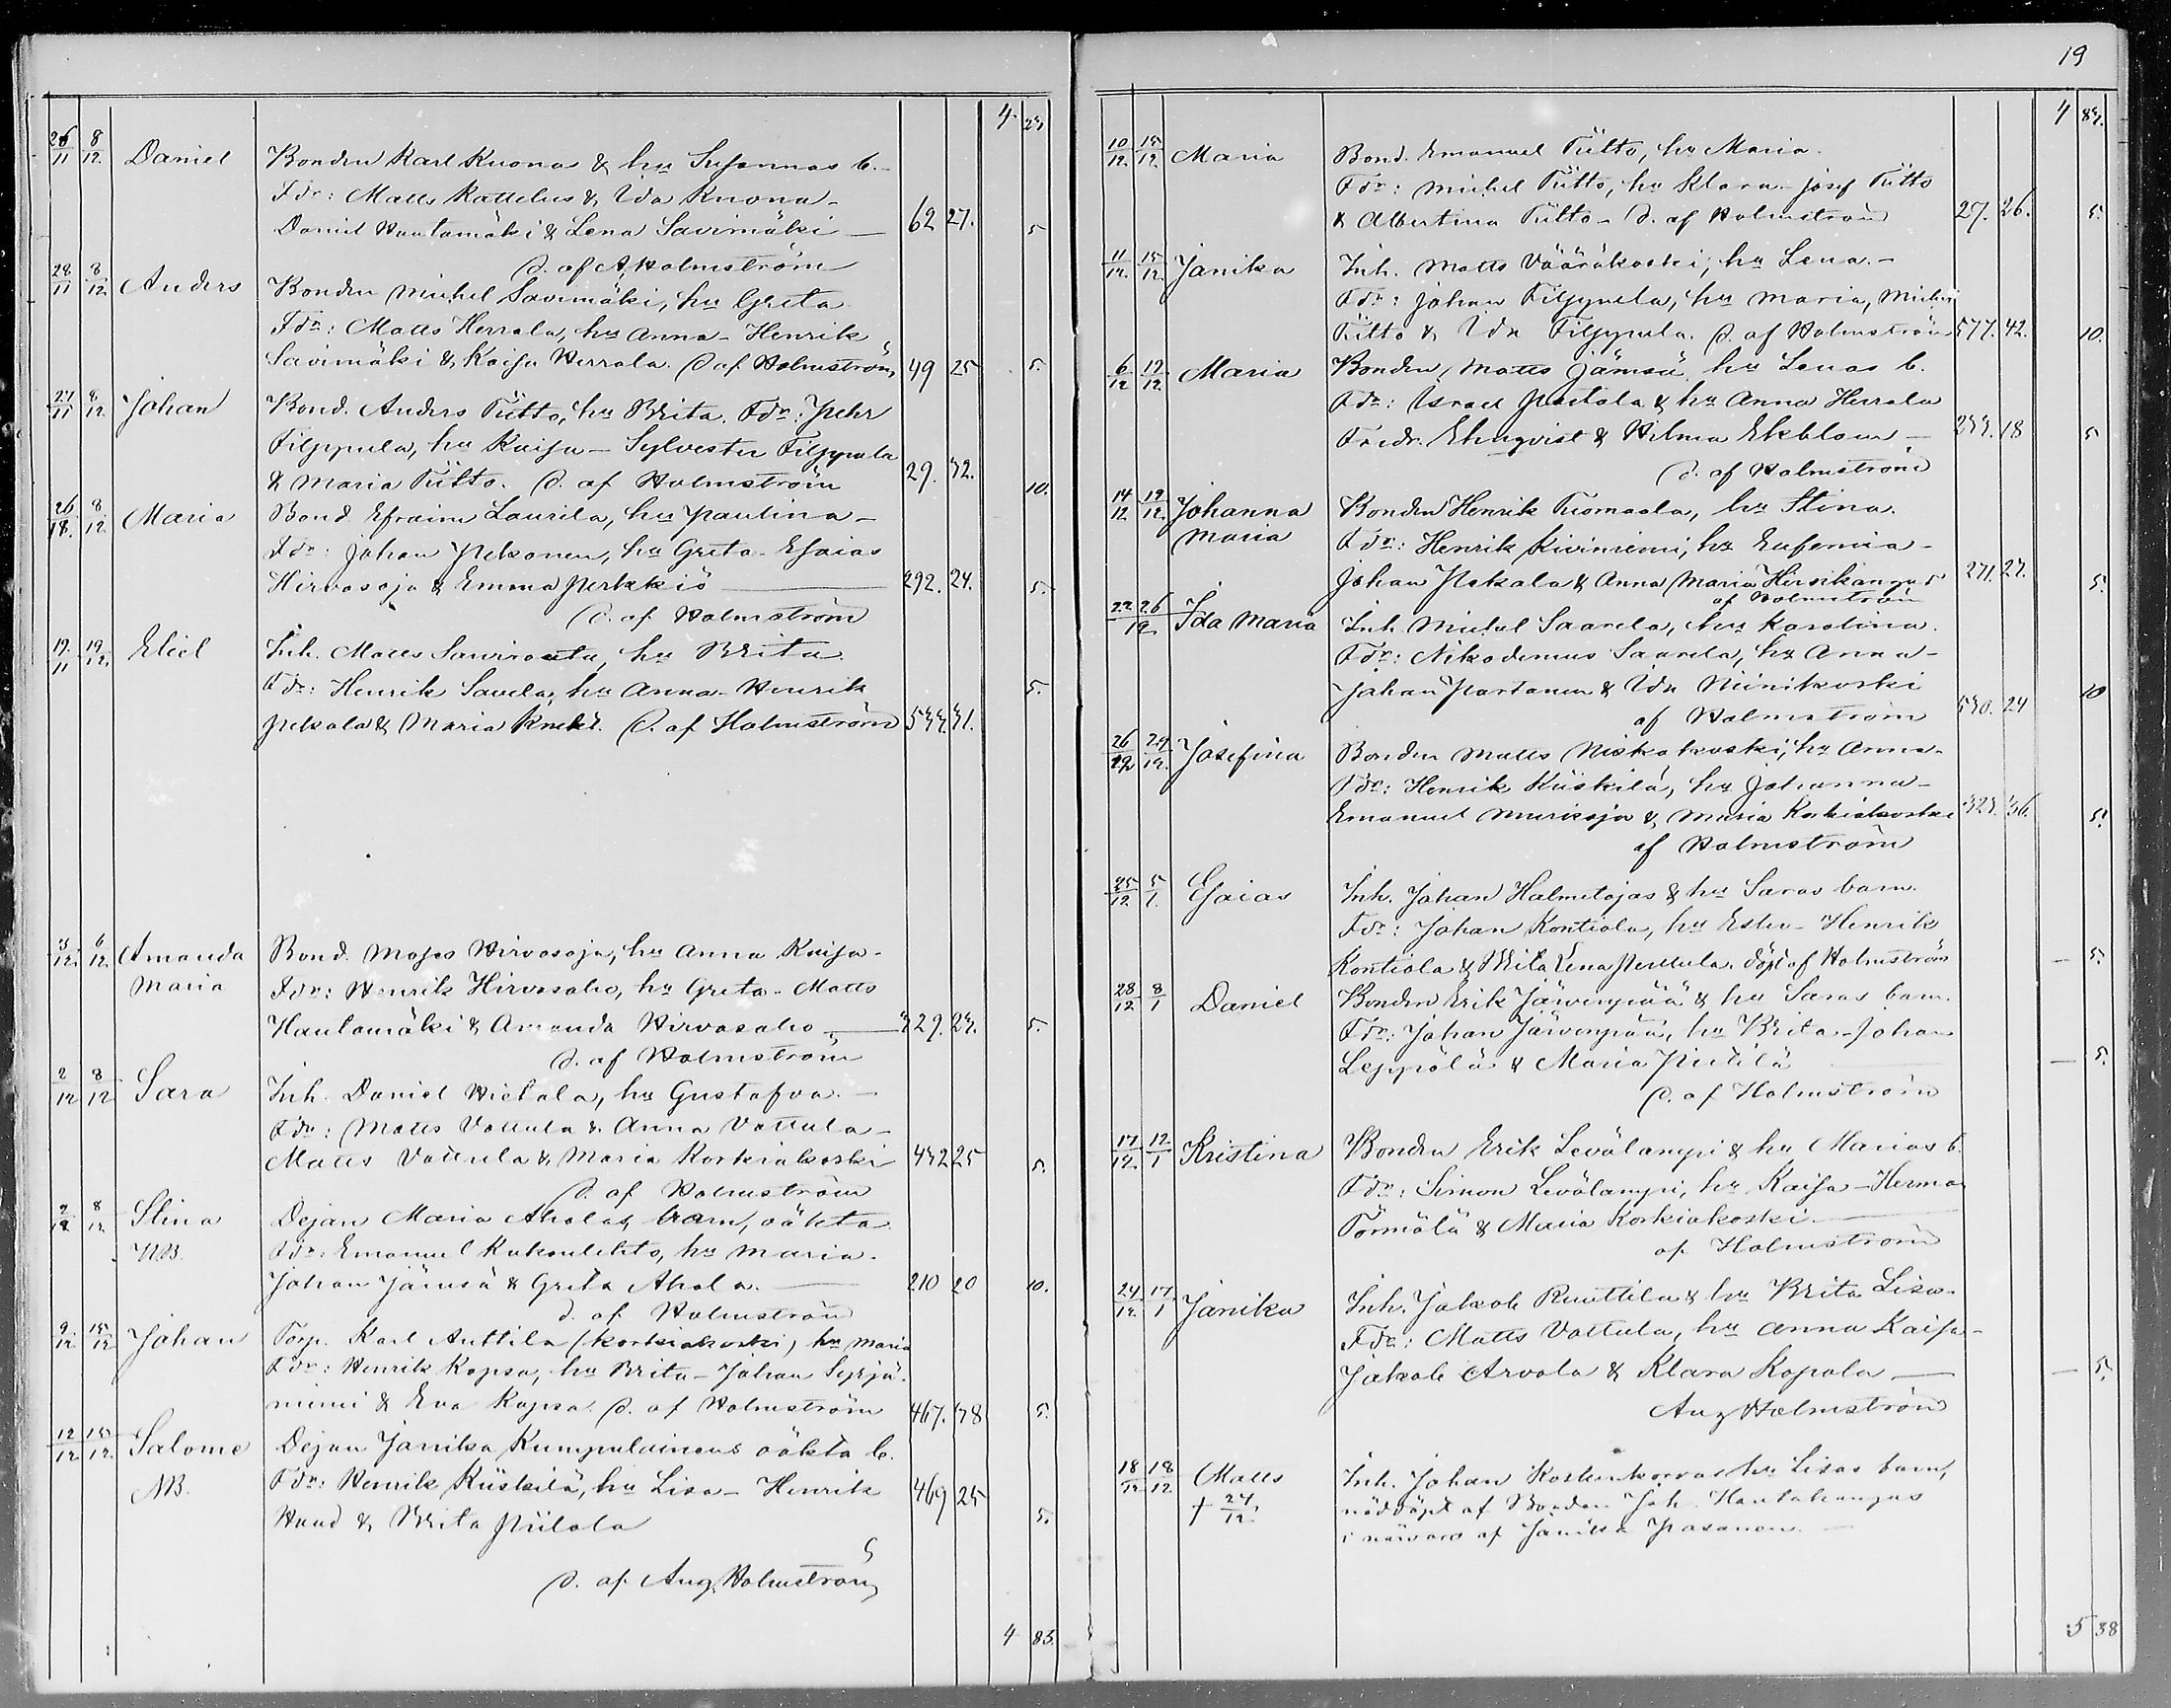 4 23.
26/11 8/12. Daniel Bonden Karl Kuona & hu Susannas b.
Fdr: Matts Kattelus & Ida Kuona -
Daniel Hautamäki & Lena Savimäki — 62 27. 5
D. af A. Holmström
28/11 8/12 Anders Bonden Michel Savimäki, hu Greta
Fdr: Matts Herrala, hu Anna - Henrik
Savimäki & Kaisa Herrala. D. af Holmström 49 25 5.
27/11 8/12. Johan Bond. Anders Tiitto, hu Brita. Fdr: Pehr
Filppula, hu Kaisa - Sylvester Filppula
& Maria Tiitto. D. af Holmström 29. 32. 10.
26/18. 8/12 Maria Bond. Efraim Laurila, hu Paulina -
Fdr: Johan Pekonen, hu Greta - Esaias
Hirvasoja & Emma Perkkiö — 292. 24. 5.
D. af Holmström
19/11 19/12. Eliel Inh. Matts Savirauta, hu Brita
Fdr: Henrik Savela, hu Anna - Henrik 5.
Pekala & Maria D. af Holmström 533. 31.
3/12. 6/12 Amanda Bond. Moses Hirvasoja, hu Anna Kaisa -
Maria Fdr: Henrik Hirvasaho, hu Greta - Matts
Hautamäki & Amanda Hirvasaho — 329. 23. 5.
D. af Holmström
2/12 8/12 Sara Inh. Daniel Hietala, hu Gustafva. -
Fdr: Matts Vattula & Anna Vattula -
Matts Vattula & Maria Korkiakoski 432 25 5.
D. af Holmström
2/12 8/12 Stina Dejan Maria Aholas barn, oäkta
NB. Fdr: Emanuel Kukonlehto, hu Maria -
Johan Jämsä & Greta Ahola. — 210 20 10.
D. af Holmström
9/12 15/12 Johan Torp. Karl Anttila (Korkiakoski) hu Maria
Fdr: Henrik Kopsa, hu Brita - Johan Syrjä-
niemi & Eva Kopsa. D. af Holmström 467. 38 5.
12/12 15/12. Salome Dejan Janika Kumpulainens oäkta b.
NB. Fdr: Henrik Kiiskilä, hu Lisa - Henrik 469 25
Hund & Brita Piilola 5.
D. af Aug. Holmström
4 83.
19
4 83.
10/12. 15/12. Maria Bond. Emanuel Tiitto, hu Maria.
Fdr: Michel Tiitto, hu Klara - Josef Tiitto
& Albertina Tiitto - D. af Holmström 27. 26. 5.
11/12. 15/12. Janika Inh. Matts Vääräkoski, hu Lena. -
Fdr: Johan Filppula, hu Maria, Michel
Tiitto & Ida Filppula. D. af Holmström 577. 42. 10.
6/12 12/12 Maria Bonden Matts Jämsä, hu Lenas b.
Fdr: Israel & hu Anna Herrala
Fredr. Ehnqvist & Hilma Ekblom — 233. 18 5
D. af Holmström
14/12 19/12. Johanna Bonden Henrik Tuomaala, hu Stina.
Maria Fdr: Henrik Kiviniemi, hu Eufemia -
Johan Pekala & Anna Maria Hirsikangas 271. 27. 5.
af Holmström
22 26/12 Ida Maria Inh. Michel Saarela, hu Karolina.
Fdr: Nikodemus Saarela, hu Anna -
Johan Partanen & Ida Niinikoski 10
af Holmström 530. 24
26/12 29/12. Josefina Bonden Matts Niskakoski, hu Anna -
Fdr: Henrik Kiiskilä, hu Johanna -
Emanuel & Maria Korkiakoski 323. 36. 5.
af Holmström
25/12 5/1. Esaias Inh. Johan Halmetojas & hu Saras barn.
Fdr: Johan Kontiola, hu Ester - Henrik
Kontiola & Brita Lena Perttula. döpt af Holmström — 5.
28/12 8/1 Daniel Bonden Erik Järvenpää & hu Saras barn.
Fdr: Johan Järvenpää, hu Brita - Johan
Leppälä & Maria Pietilä — 5.
D. af Holmström
17/12. 12/1 Kristina Bonden Erik Levälampi & hu Marias b.
Fdr: Simon Levälampi, hu Kaisa - Herman
Törmälä & Maria Korkiakoski. —
af Holmström
24/12 17/1 Janika Inh. Jakob Ruuttila & hu Brita Lisa -
Fdr: Matts Vattula, hu Anna Kaisa -
Jakob Arvola & Klara Kopola — — 5.
Aug Holmström
18/12 18/12 Matts Inh. Johan hu Lisas barn,
† 24/12. nöddöpt af Bonden Joh. Hautakangas
i närvaro af Janika Pasanen. —
5 38